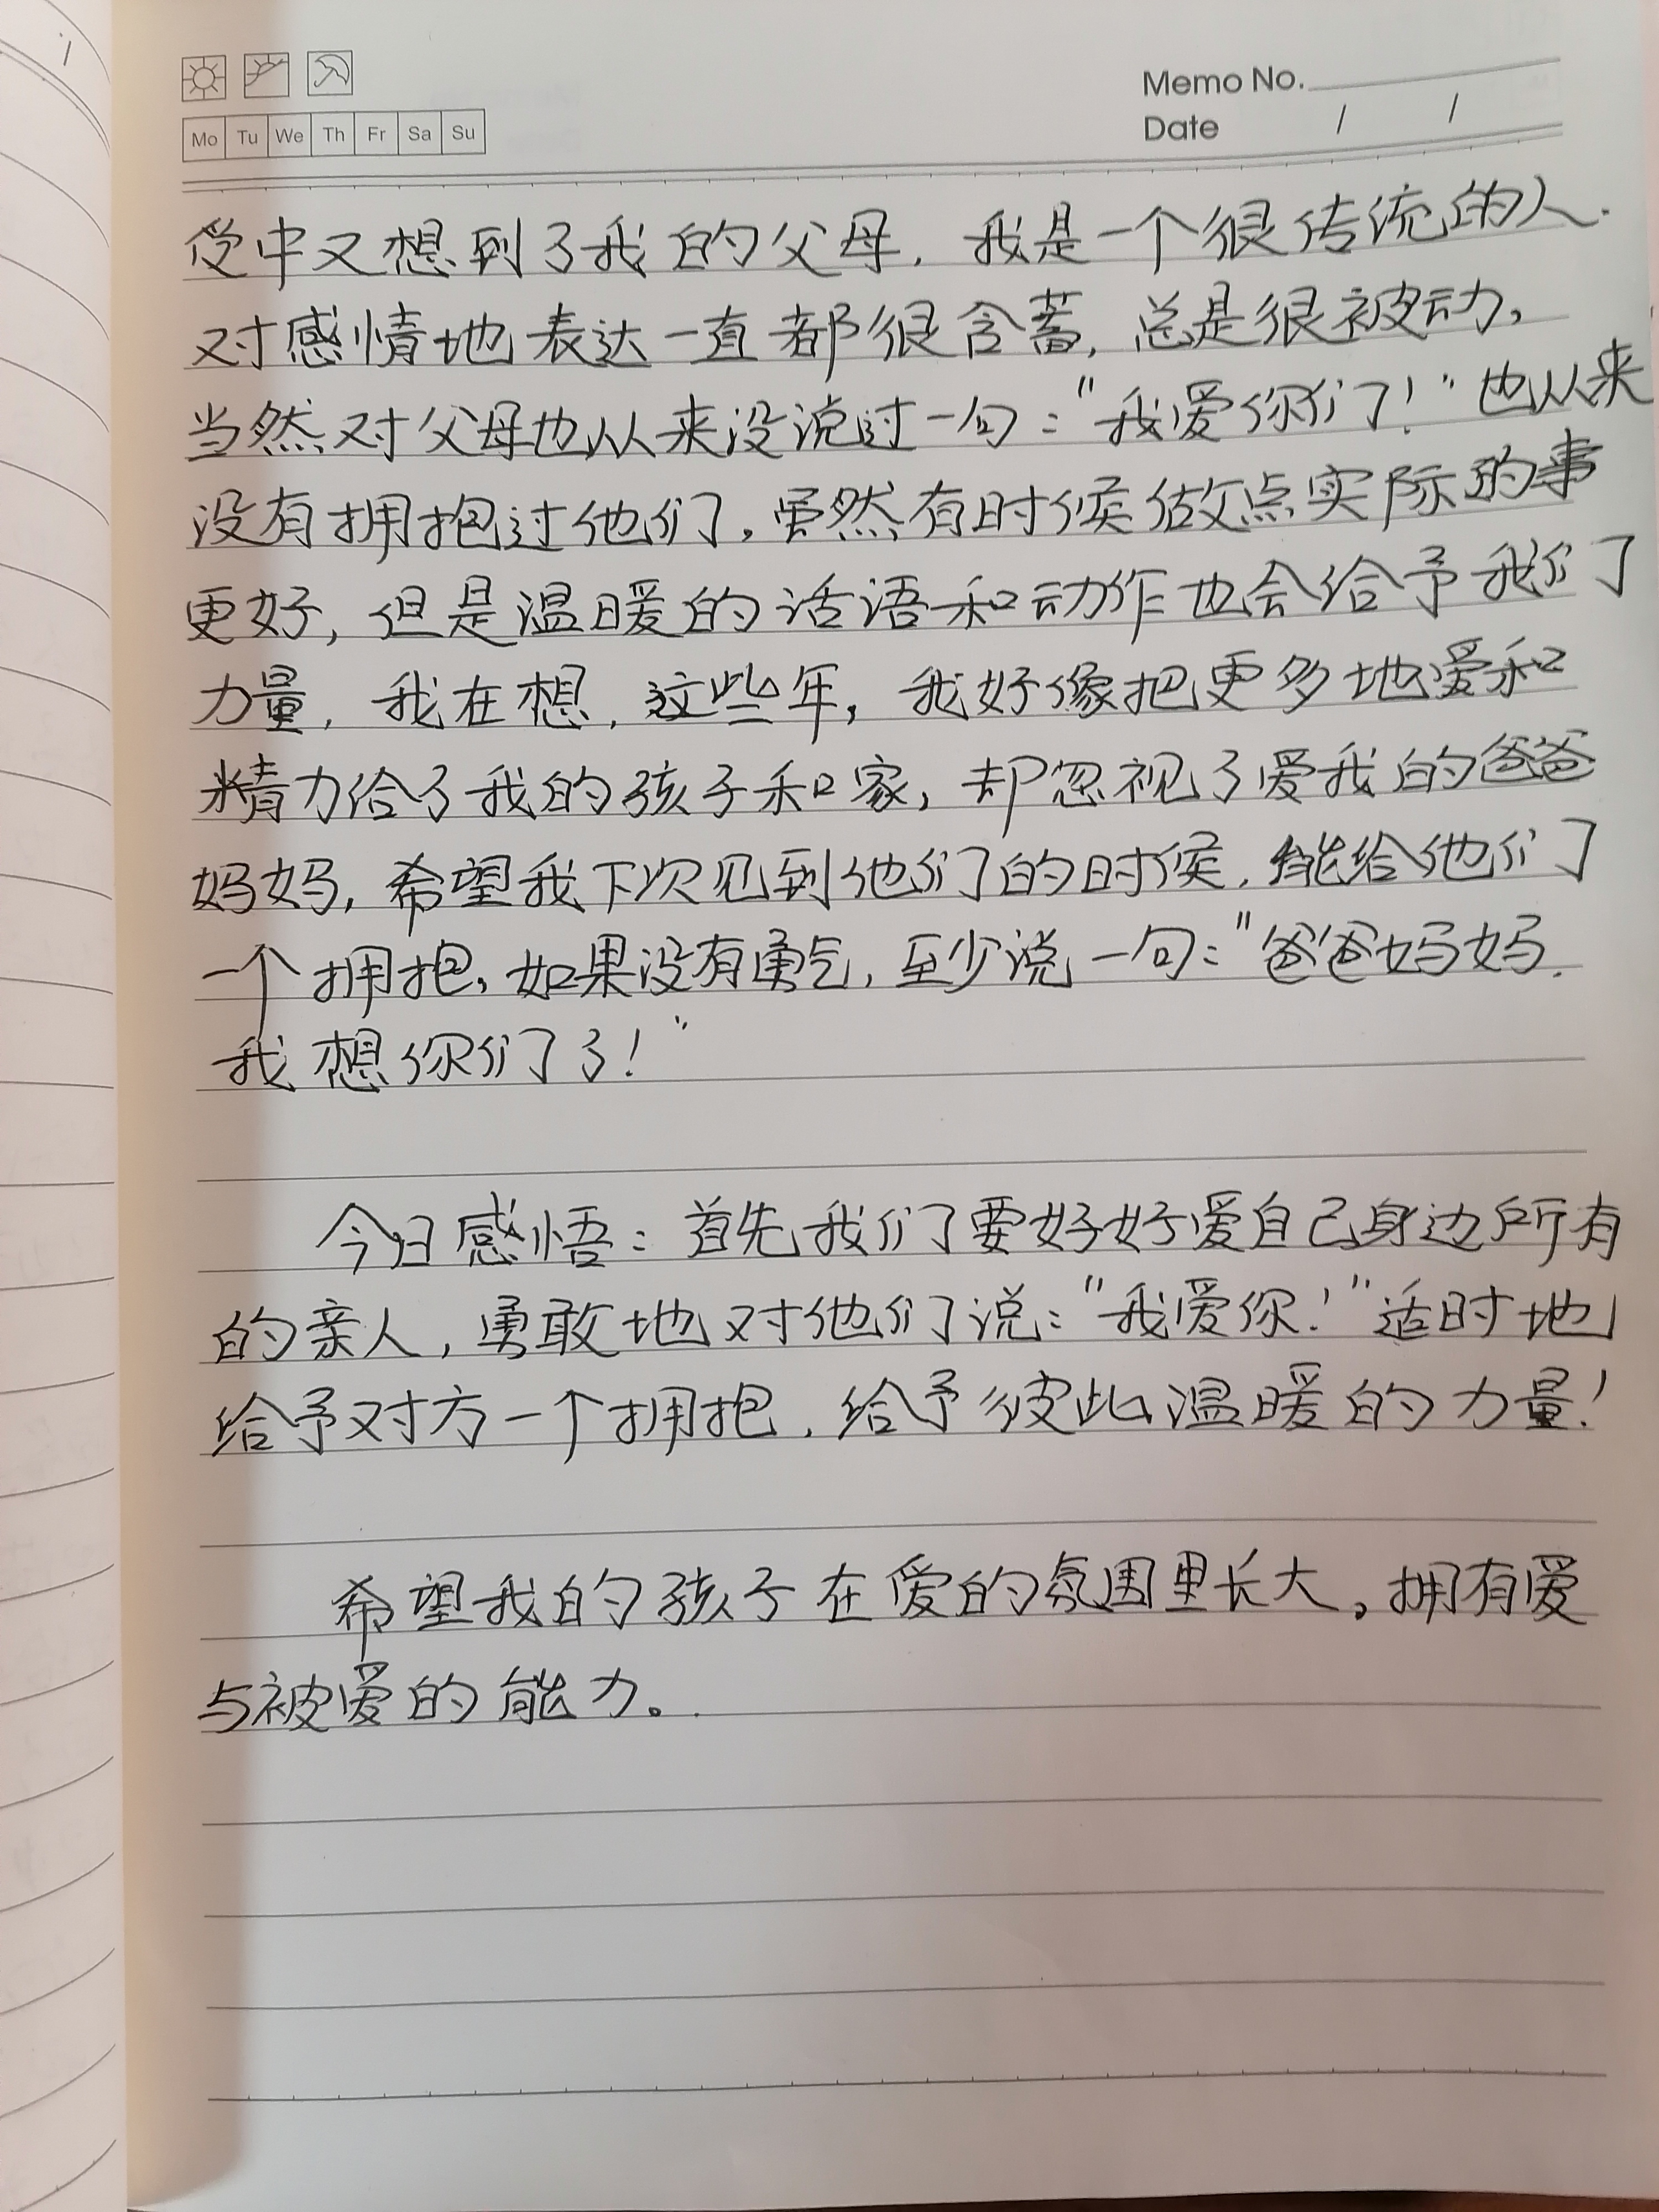 Memo No.
Mo Tu We Th Fr Sa Su
Date / /
受中又想到了我的父母，我是一个很传统的人.
对感情地表达一直都很含蓄，总是很被动，
当然对父母也从来没说过一句："我爱你们！"也从来
没有拥抱过他们，虽然有时候做点实际的事
更好，但是温暖的话语和动作也会给予我们
力量，我在想，这些年，我好像把更多地爱和
精力给了我的孩子和家，却忽视了爱我的爸爸
妈妈，希望我下次见到他们的时候，能给他们
一个拥抱，如果没有勇气，至少说一句："爸爸妈妈.
我想你们了！"
今日感悟：首先我们要好好爱自己身边所有
的亲人，勇敢地对他们说："我爱你！"适时地
给予对方一个拥抱，给予彼此温暖的力量！
希望我的孩子在爱的氛围里长大，拥有爱
与被爱的能力。